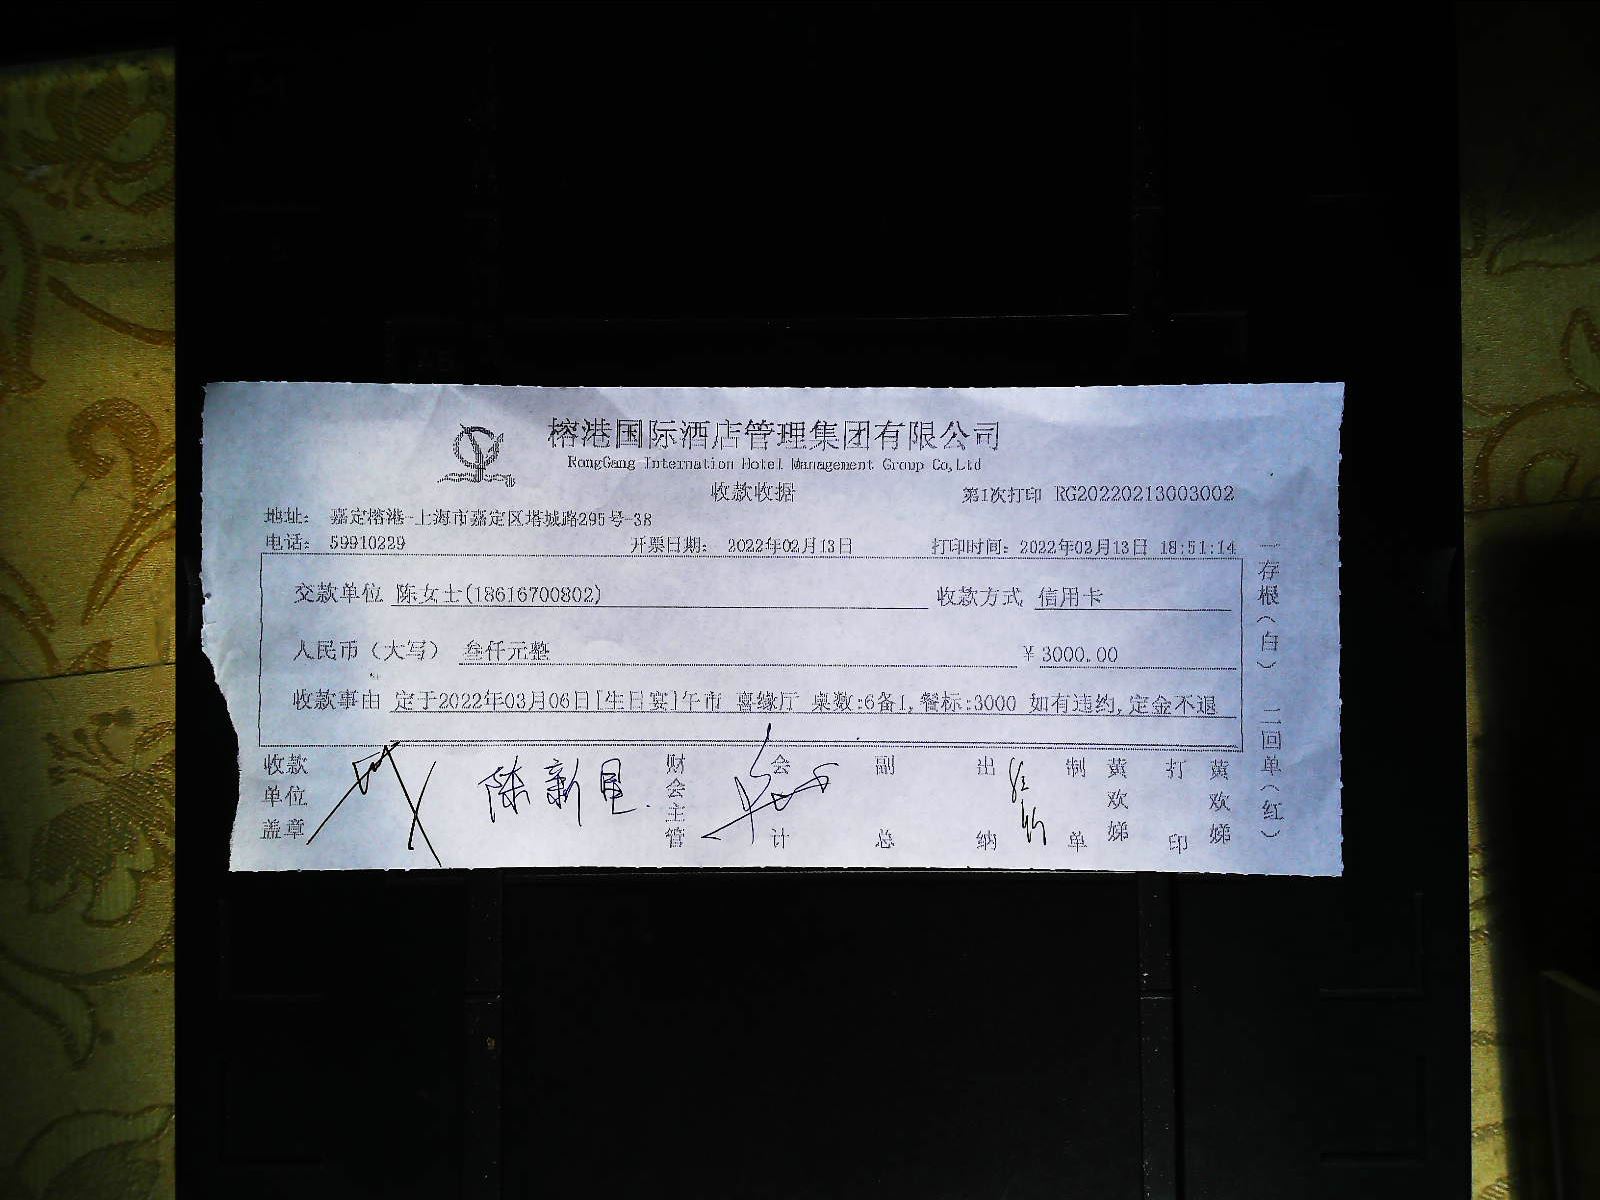 榕港国际酒店管理集团有限公司
RongGang Internation Hotel Management Group Co,Ltd
收款收据
第1次打印 RG20220213003002
地址: 嘉定榕港-上海市嘉定区塔城路295号-38
电话: 59910229 开票日期: 2022年02月13日 打印时间: 2022年02月13日 18:51:14
交款单位 陈女士(18616700802) 收款方式 信用卡
人民币(大写) 叁仟元整 ¥ 3000.00
收款事由 定于2022年03月06日[生日宴]午市 喜缘厅 桌数:6备1,餐标:3000 如有违约,定金不退
收款单位盖章 陈新 财会主管 会计 副总 出纳 制单 黄欢娣 打印 黄欢娣
一存根(白) 二回单(红)